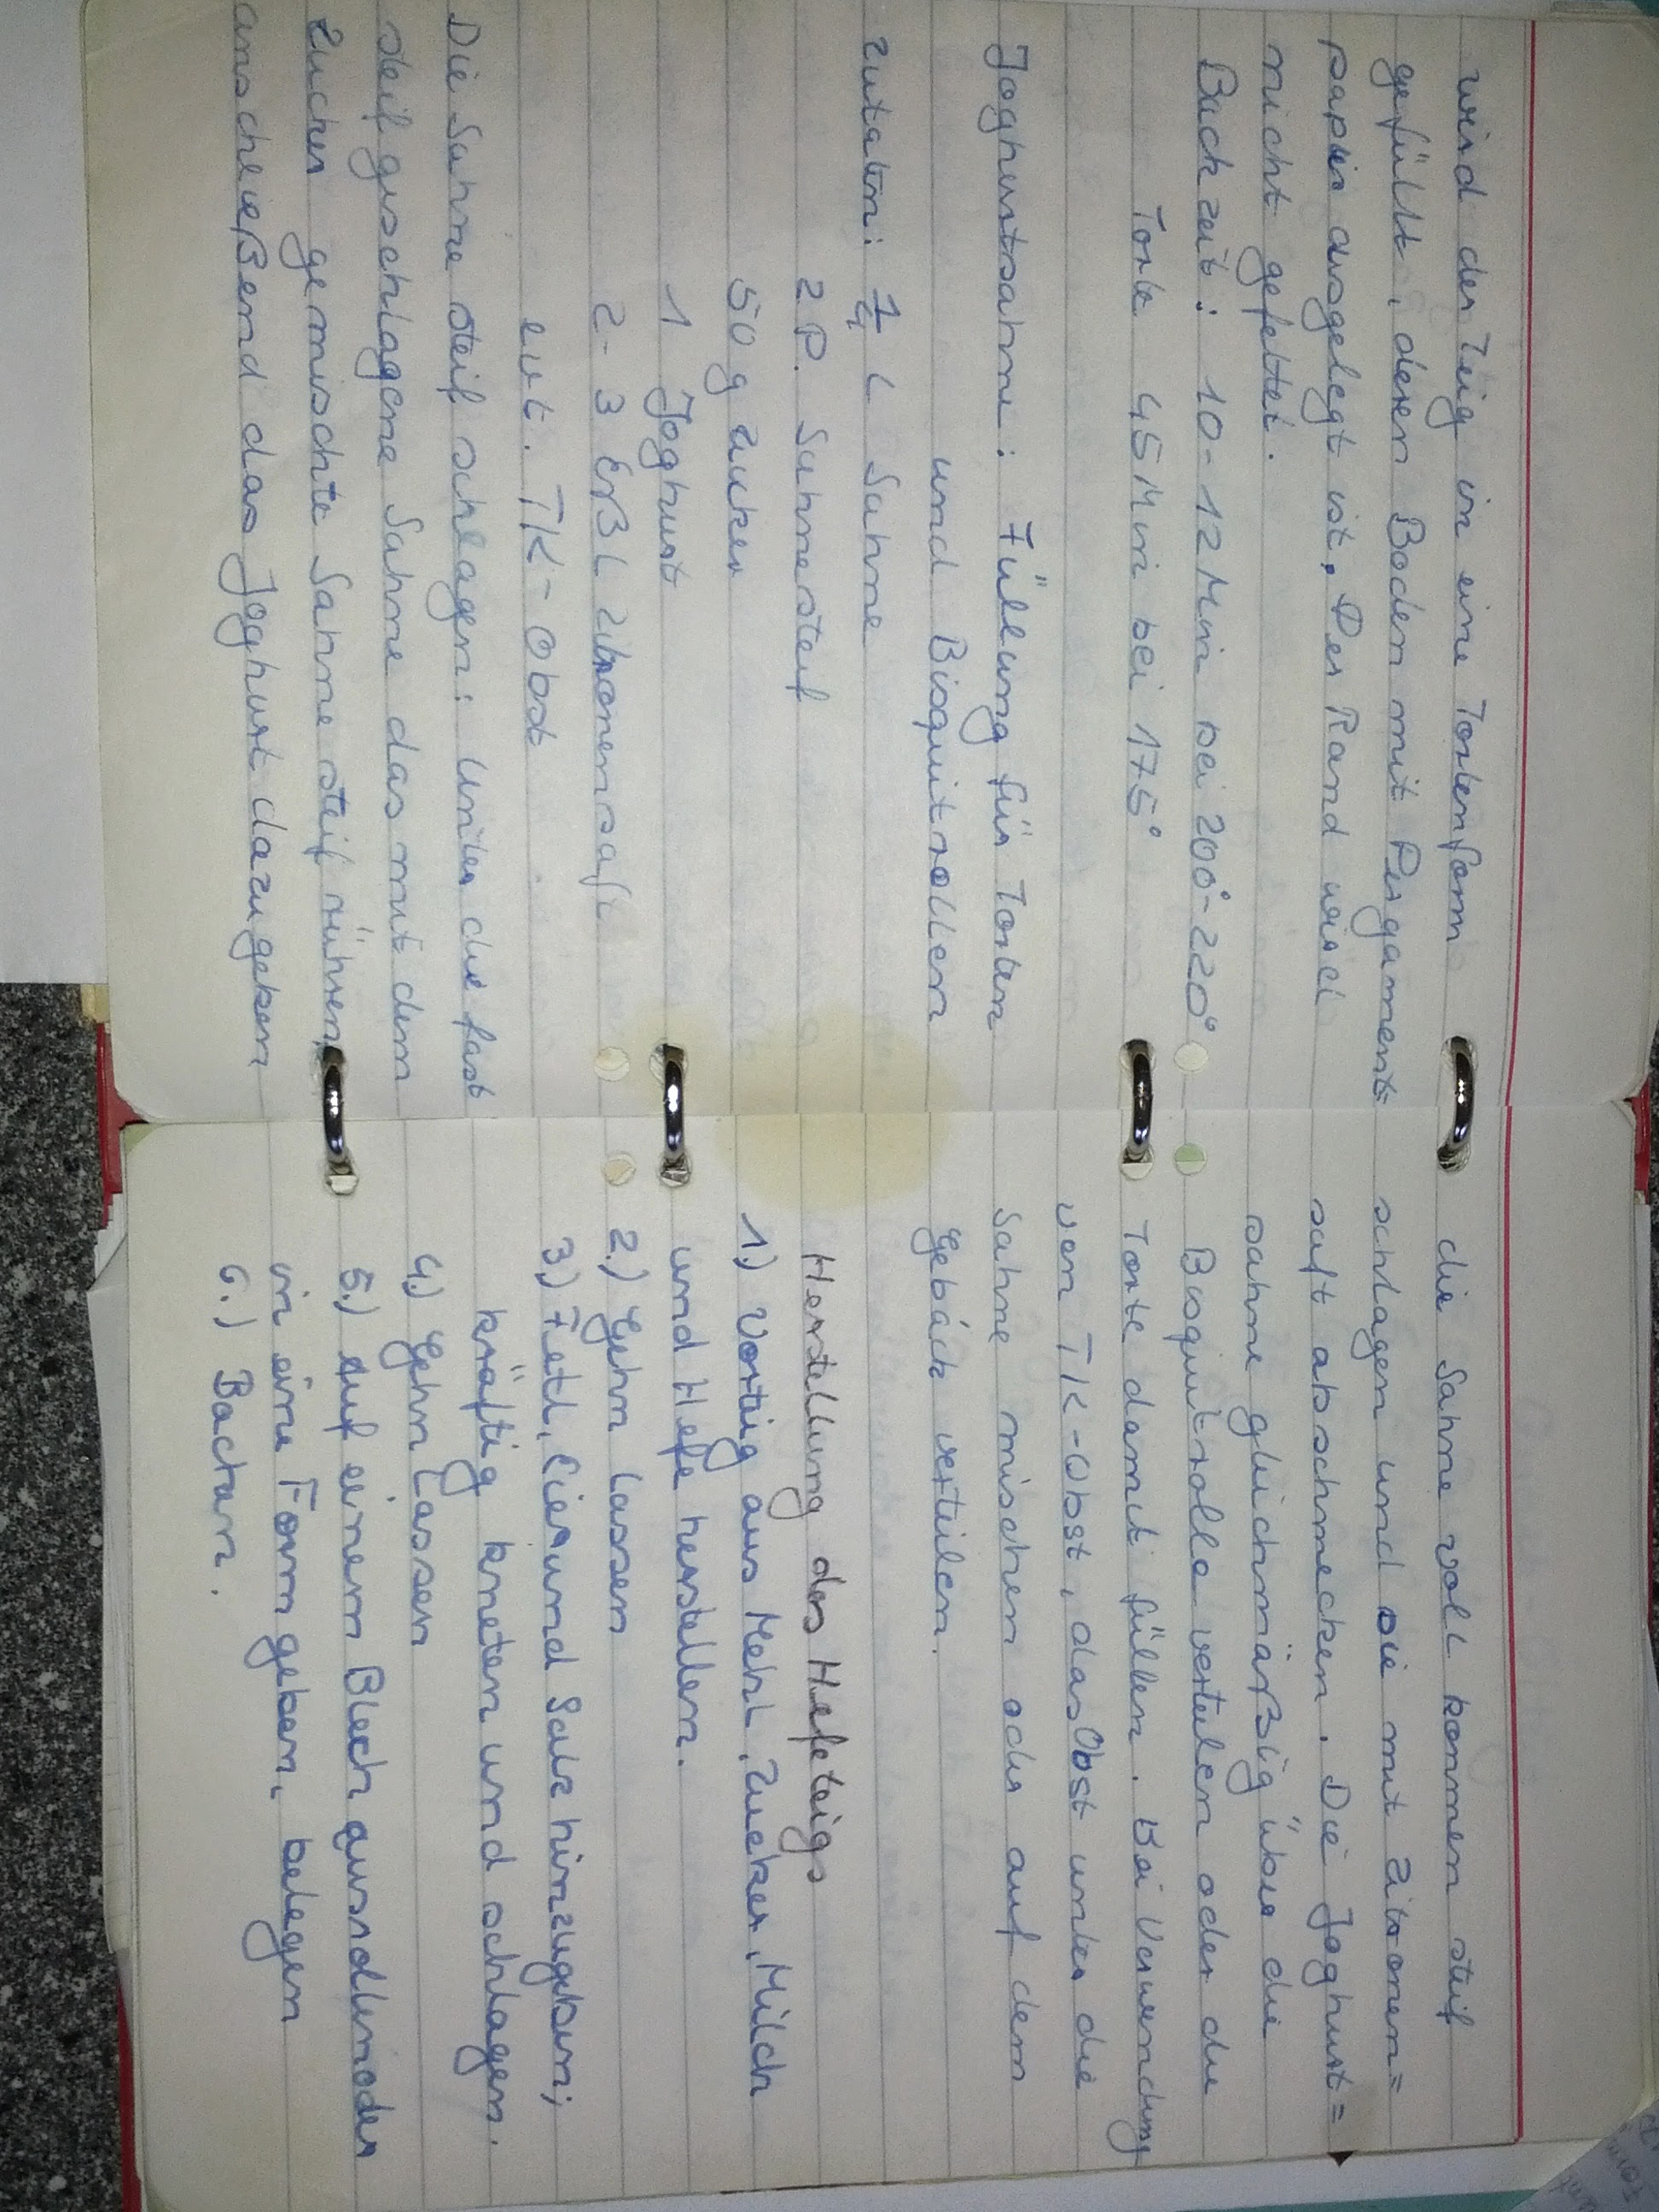 wird der Teig in eine Tortenform
gefüllt, deren Boden mit Pergament=
papier ausgelegt ist. Der Rand wird
nicht gefettet.
Backzeit: 10-12 Min bei 200°-220°
Torte 45 Min bei 175°
Joghurtsahne: Füllung für Torten
und Bisquitrollen
Zutaten: 1/4 L Sahne
2 P. Sahnesteif
50 g Zucker
1 Joghurt
2-3 EßL Zitronensaft
evt. TK-Obst
Die Sahne steif schlagen: Unter die fast
steif geschlagene Sahne das mit dem
Zucker gemischte Sahnesteif rühren,
anschließend das Joghurt dazugeben
die Sahne vollkommen steif
schlagen und sie mit Zitronen=
saft abschmecken. Die Joghurt=
sahne gleichmäßig über die
Bisquitrolle verteilen oder die
Torte damit füllen. Bei Verwendung
von TK-Obst, das Obst unter die
Sahne mischen oder auf dem
Gebäck verteilen.
Herstellung des Hefeteigs
1.) Vorteig aus Mehl, Zucker, Milch
und Hefe herstellen.
2.) Gehn lassen
3.) Fett, Eier und Salz hinzugeben;
kräftig kneten und schlagen.
4.) Gehn lassen
5.) auf einem Blech ausrollen oder
in eine Form geben, belegen
6.) Backen.